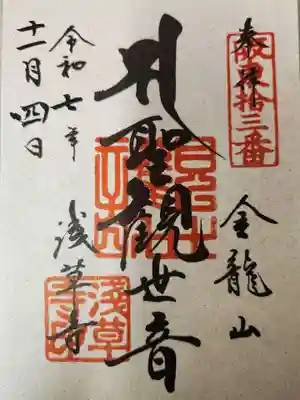 奉拝
坂東拾三番
金龍山
聖観世音
浅草寺
令和七年
十一月四日